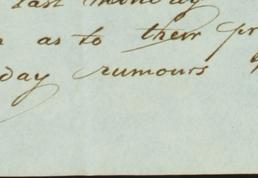 last monday
as to their pr
day rumours